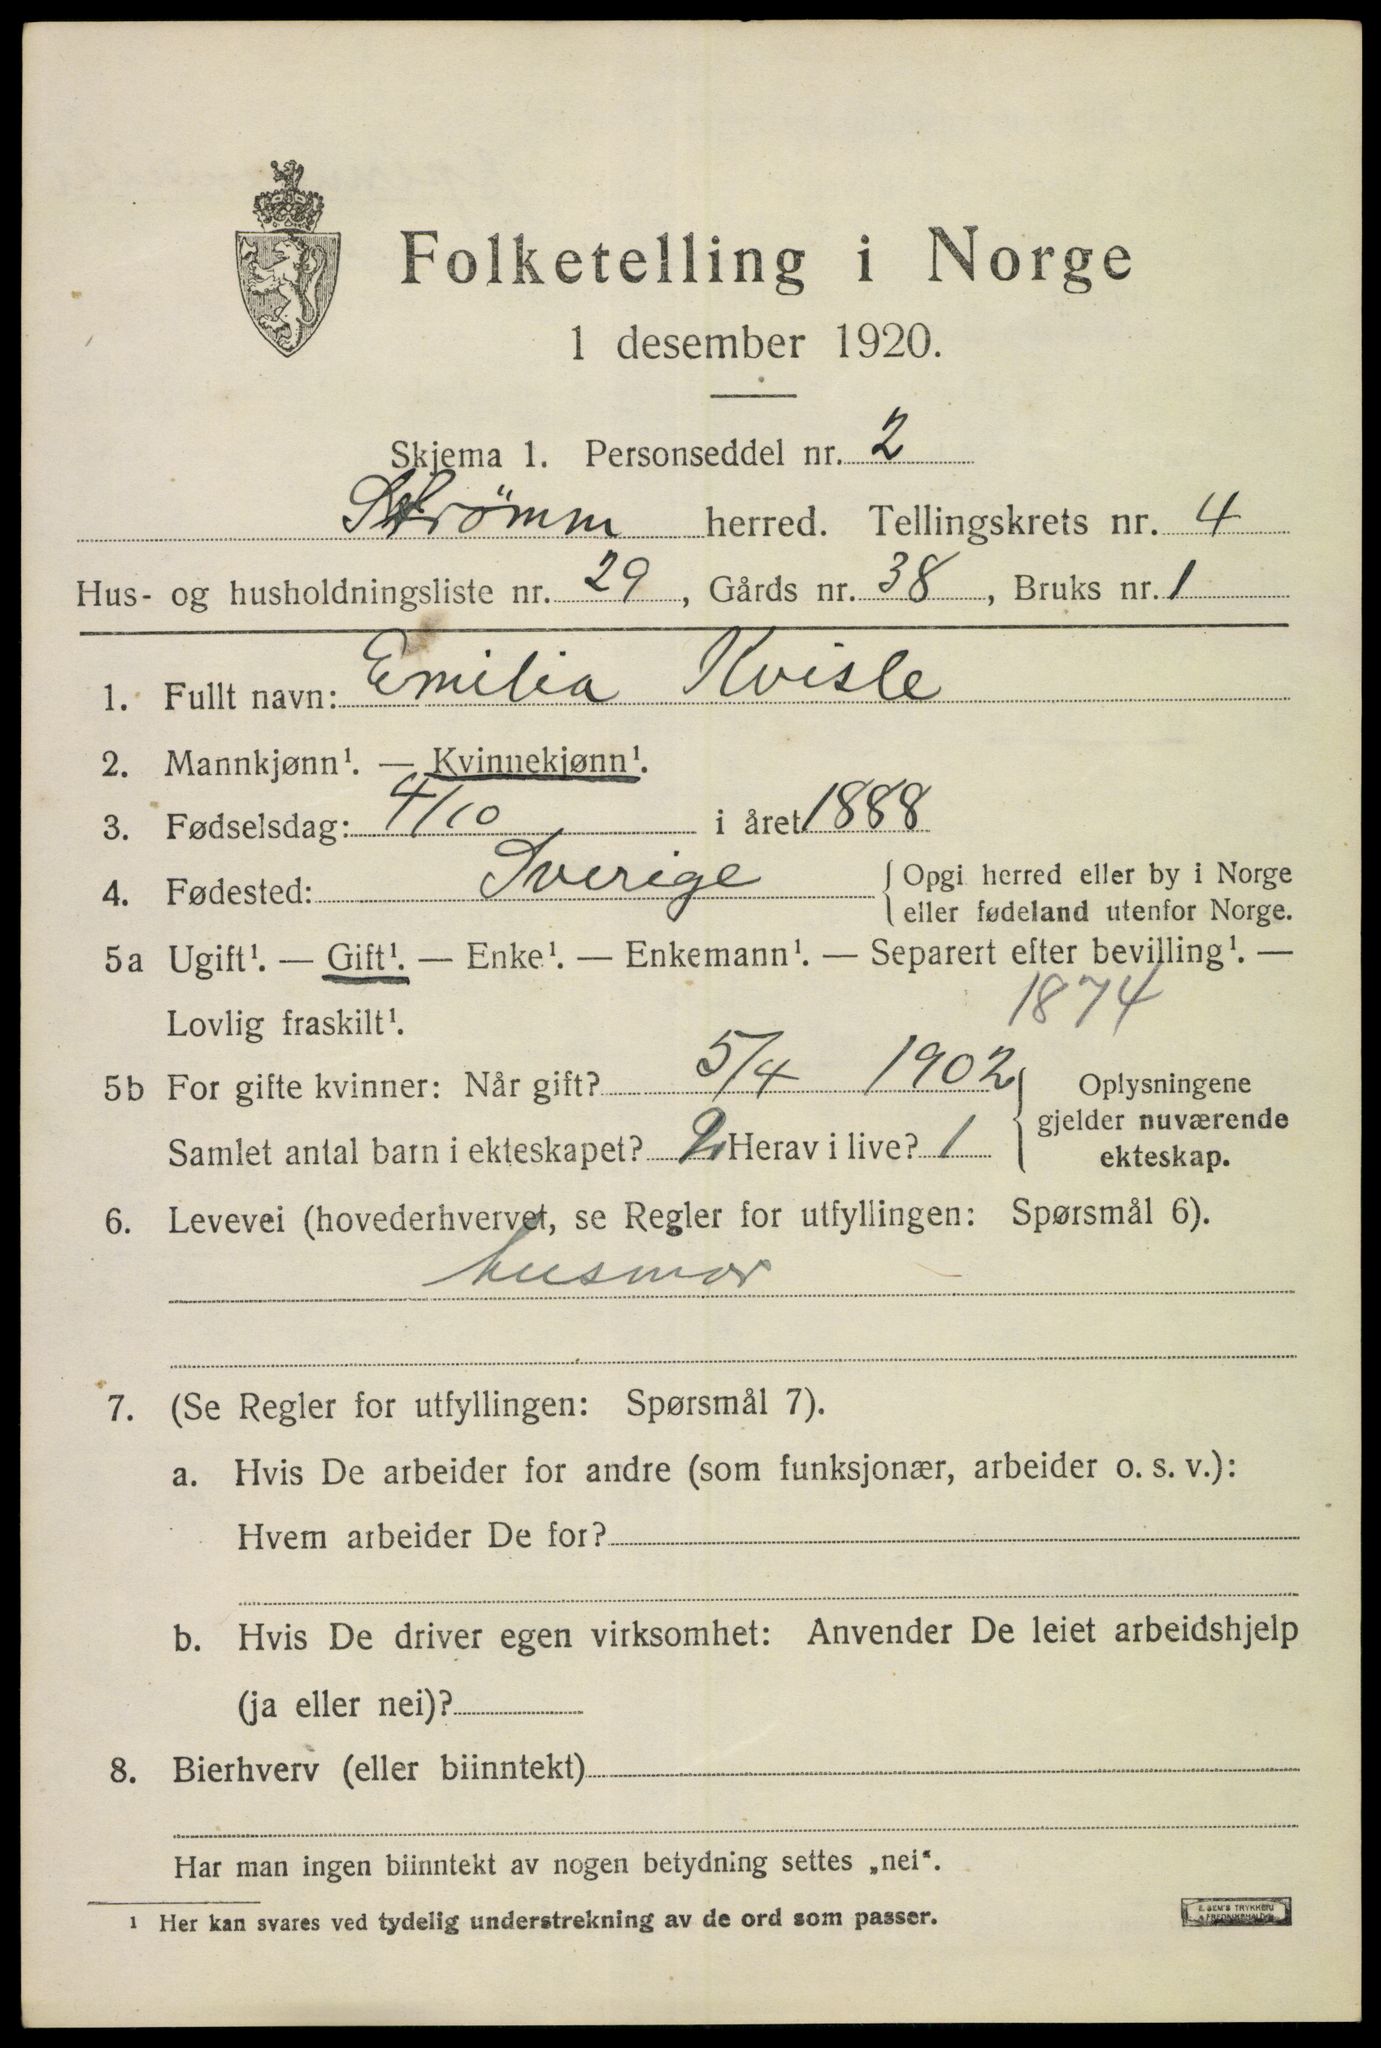 Folketelling i Norge
1 desember 1920.
Skjema 1. Personseddel nr. 2
Strømm herred. Tellingskrets nr. 4
Hus- og husholdningsliste nr. 29, Gårds nr. 38, Bruks nr. 1
1. Fullt navn: Emilia Kvisle
2. Mannkjønn¹. — Kvinnekjønn¹.
3. Fødselsdag: 4/10 i året 1888
4. Fødested: Sverige { Opgi herred eller by i Norge
eller fødeland utenfor Norge.
5a Ugift¹. — Gift¹. — Enke¹. — Enkemann¹. — Separert efter bevilling¹. —
Lovlig fraskilt¹. 1874
5b For gifte kvinner: Når gift? 5/4 1902 { Oplysningene
gjelder nuværende
Samlet antal barn i ekteskapet? 2 Herav i live? 1 ekteskap.
6. Levevei (hovederhvervet, se Regler for utfyllingen: Spørsmål 6).
husmor
7. (Se Regler for utfyllingen: Spørsmål 7).
a. Hvis De arbeider for andre (som funksjonær, arbeider o. s. v.):
Hvem arbeider De for?
b. Hvis De driver egen virksomhet: Anvender De leiet arbeidshjelp
(ja eller nei)?
8. Bierhverv (eller biinntekt)
Har man ingen biinntekt av nogen betydning settes „nei“.
¹ Her kan svares ved tydelig understrekning av de ord som passer.
E. SEM'S TRYKKERI
FREDRIKSHALD